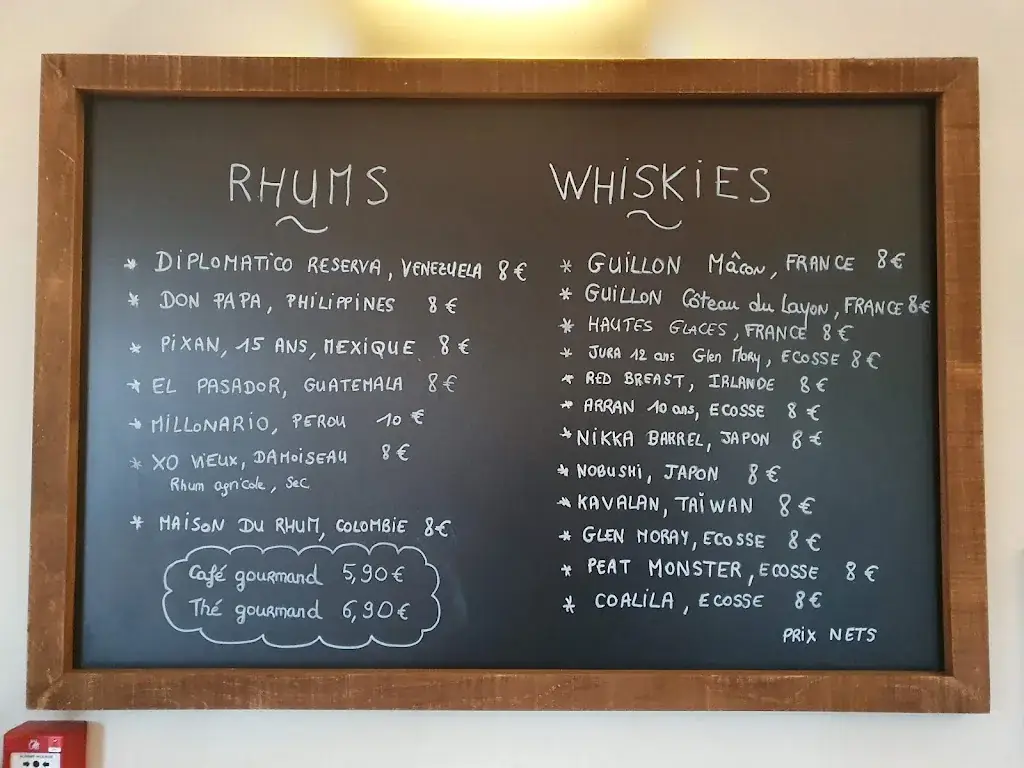 RHUMS
* DIPLOMATICO RESERVA, VENEZUELA 8€
* DON PAPA, PHILIPPINES 8€
* PIXAN, 15 ANS, MEXIQUE 8€
* EL PASADOR, GUATEMALA 8€
* MILLONARIO, PEROU 10€
* XO VIEUX, DAMOISEAU 8€
Rhum agricole, Sec
* MAISON DU RHUM, COLOMBIE 8€
Café gourmand 5,90€
Thé gourmand 6,90€
WHISKIES
* GUILLON Mâcon, FRANCE 8€
* GUILLON Côteau du Layon, FRANCE 8€
* HAUTES GLACES, FRANCE 8€
* JURA 12 ans Glen Mory, ECOSSE 8€
* RED BREAST, IRLANDE 8€
* ARRAN 10 ans, ECOSSE 8€
* NIKKA BARREL, JAPON 8€
* NOBUSHI, JAPON 8€
* KAVALAN, TAÏWAN 8€
* GLEN MORAY, ECOSSE 8€
* PEAT MONSTER, ECOSSE 8€
* COALILA, ECOSSE 8€
PRIX NETS